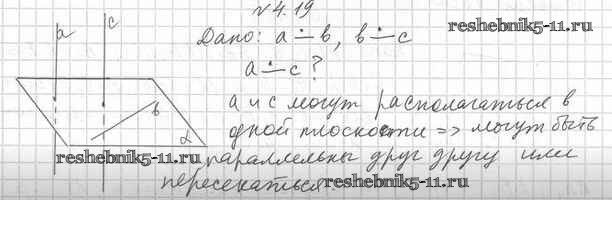 № 4.19
Дано: a ∸ b, b ∸ c
a ∸ c ?
a и c могут располагаться в
одной плоскости => могут быть
параллельны друг другу или
пересекаться.
a
c
b
α
reshebnik5-11.ru
reshebnik5-11.ru
reshebnik5-11.ru